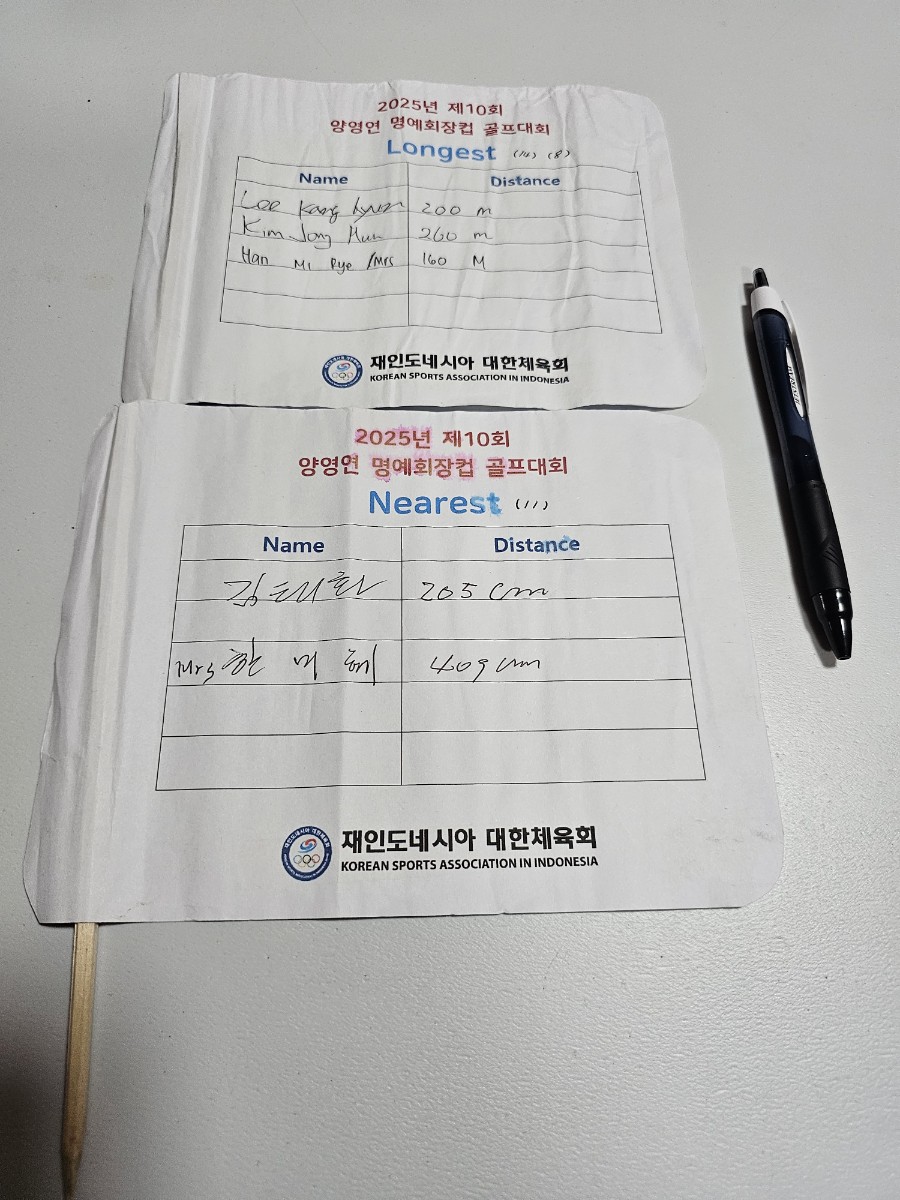 2025년 제10회
양영연 명예회장컵 골프대회
Longest (14) (8)
Name Distance
Lee Kang hyun 200 m
Kim Jong Hun 260 m
Han Mi Rye /Mrs 160 M
재인도네시아 대한체육회
KOREAN SPORTS ASSOCIATION IN INDONESIA
2025년 제10회
양영연 명예회장컵 골프대회
Nearest (11)
Name Distance
김태화 205 cm
Mrs 한 미 혜 409 cm
재인도네시아 대한체육회
KOREAN SPORTS ASSOCIATION IN INDONESIA